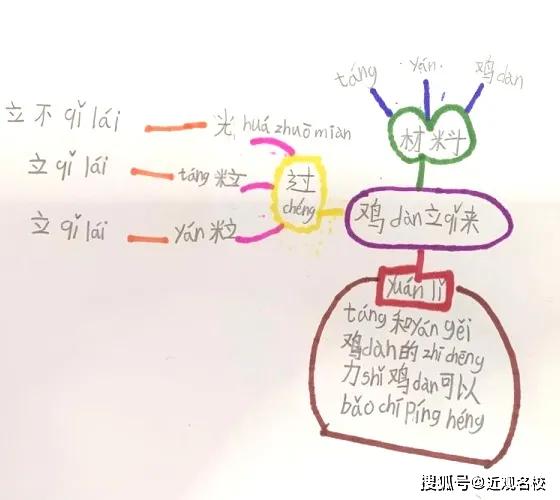 táng
yán
鸡dàn
材料
立不qǐ lái
光huá zhuō miàn
立qǐ lái
táng粒
立qǐ lái
yán粒
过
chéng
鸡dàn立qǐ来
yuán lǐ
táng和yán gěi
鸡dàn的zhī chēng
力shǐ鸡dàn可以
bǎo chí píng héng
搜狐号@近观名校